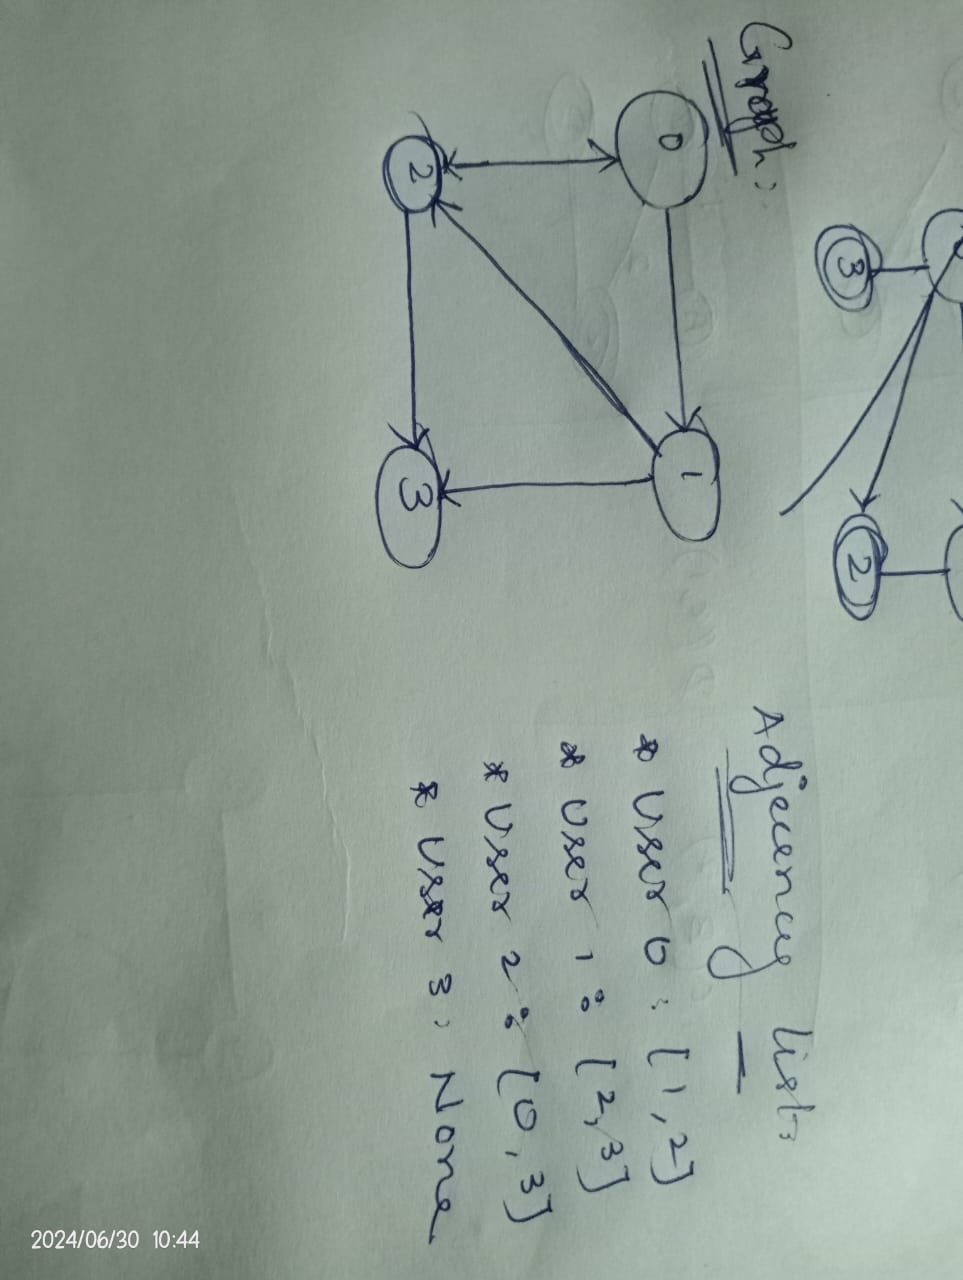 Graph:
0
1
2
3
3
2
Adjecency list:
* User 0: [1,2]
* User 1: [2,3]
* User 2: [0,3]
* User 3: None
2024/06/30 10:44